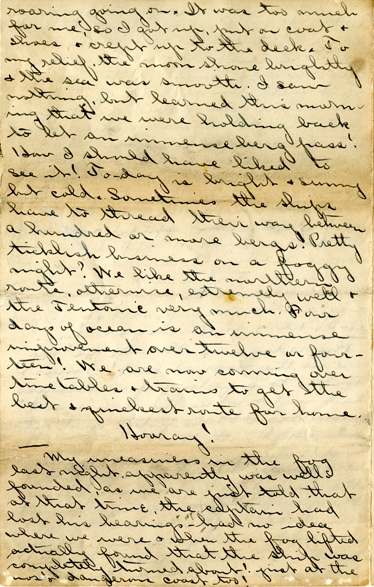 roaring going on. It was too much
for me, so I got up, put on coat &
shoes & crept up to the deck. To
my relief, the moon shone brightly
& the sea was smooth. I saw
nothing, but learned this morn-
ing that we were holding back
to let an immense berg pass!
How I should have liked to
see it! Today is bright & sunny
but cold. Sometimes the ships
have to thread their way between
a hundred or more bergs! Pretty
ticklish business on a foggy
night? We like the northern
route, otherwise, extremely well &
the Teutonic very much. Four
days of ocean is an immense
improvement over twelve or four-
teen! We are now conning over
time tables & trains to get the
best & quickest route for home.
Hooray!
My uneasiness in the fog
last night apparently was well
founded as we are just told that
at that time the captain had
lost his bearings, had no idea
where we were & when the fog lifted
actually found that the ship was
completely turned about! just at the
most dangerous coast too!